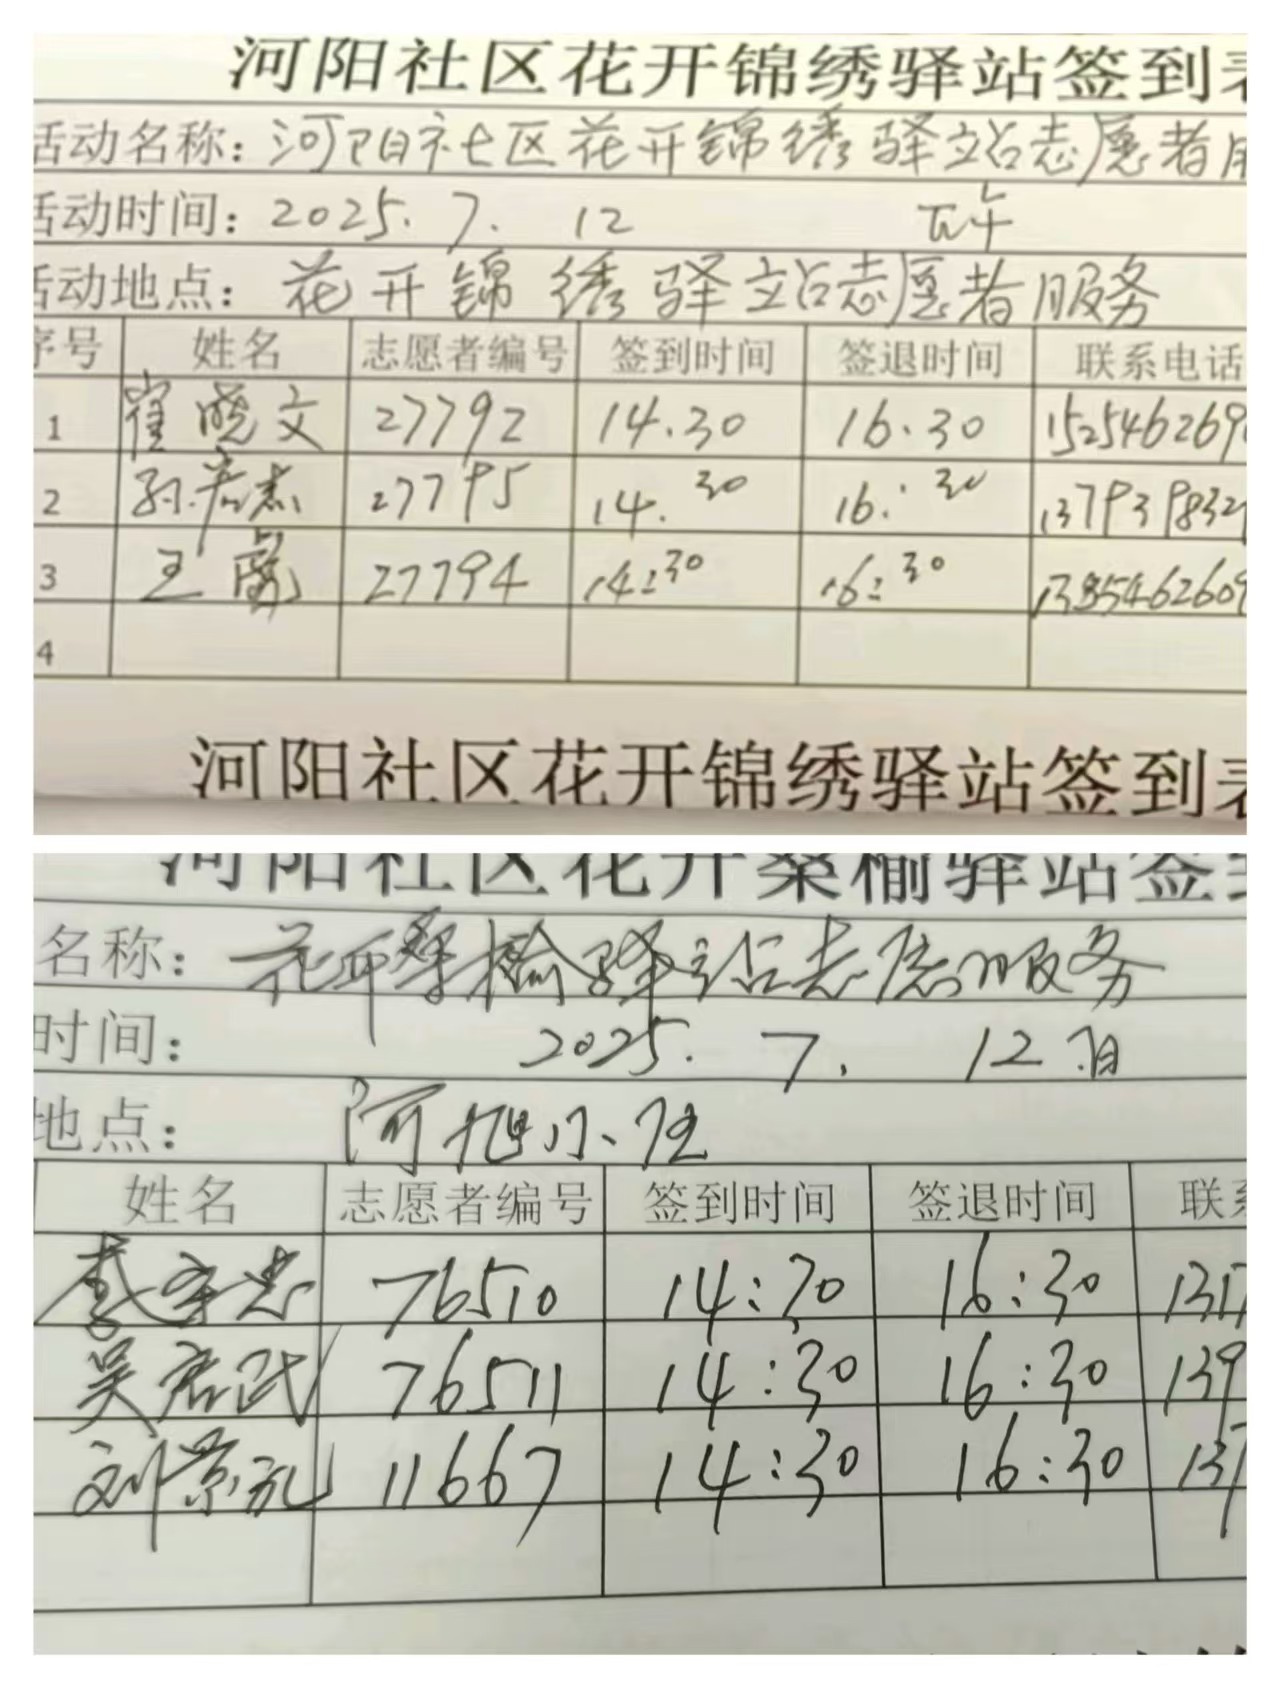 河阳社区花开锦绣驿站签到表
活动名称：河阳社区花开锦绣驿站志愿者服
活动时间：2025.7. 12 下午
活动地点：花开锦绣驿站志愿者服务
序号 姓名 志愿者编号 签到时间 签退时间 联系电话
1 崔晓文 27792 14.30 16.30 152546269
2 孙君杰 27795 14.30 16:30 137939832
3 王 27794 14:30 16:30 1385462609
4
河阳社区花开锦绣驿站签到表
河阳社区花开桑榆驿站签到
名称：花开桑榆驿站志愿服务
时间：2025. 7. 12日
地点：河旭小区
姓名 志愿者编号 签到时间 签退时间 联系
李宝忠 76510 14:30 16:30 131
吴君武 76511 14:30 16:30 139
刘景礼 11667 14:30 16:30 137